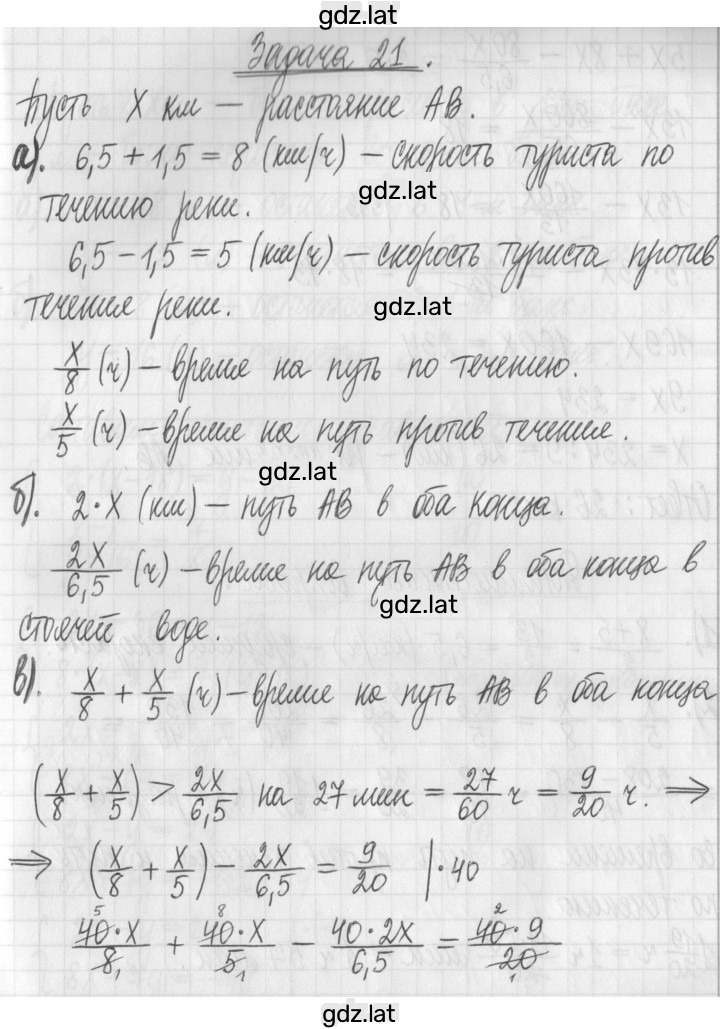 gdz.lat
Задача 21.
Пусть X км — расстояние AB.
а). 6,5 + 1,5 = 8 (км/ч) — скорость туриста по
gdz.lat
течению реки.
6,5 − 1,5 = 5 (км/ч) — скорость туриста против
течения реки.
gdz.lat
x/8 (ч) — время на путь по течению.
x/5 (ч) — время на путь против течения.
gdz.lat
б). 2·X (км) — путь AB в оба конца.
2X/6,5 (ч) — время на путь AB в оба конца в
gdz.lat
стоячей воде.
в). x/8 + x/5 (ч) — время на путь AB в оба конца
(x/8 + x/5) > 2x/6,5 на 27 мин = 27/60 ч = 9/20 ч. ⇒
⇒ (x/8 + x/5) − 2x/6,5 = 9/20 |·40
40·x/8 + 40·x/5 − 40·2x/6,5 = 40·9/20
gdz.lat